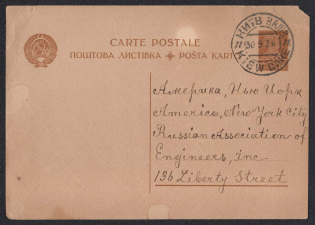 CARTE POSTALE
ПОШТОВА ЛИСТІВКА • POŜTA KARTO
КИЇВ
30 5
KIEW
Америка, Нью Йорк
America, New York City
Russian Association of
Engineers, Inc.
136 Liberty Street